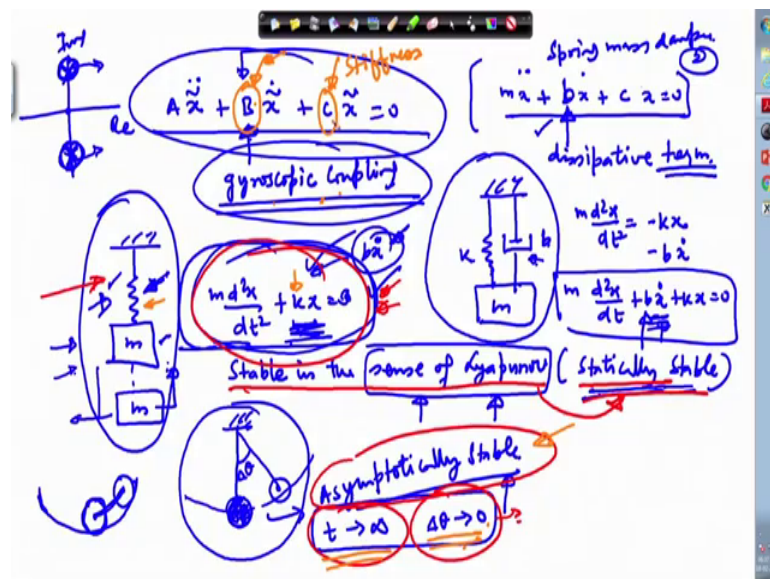 Img
Re
Aẍ̃ + Bẋ̃ + Cx̃ = 0
stiffness
gyroscopic coupling
Spring mass damper
②
mẍ + bẋ + c x = 0
dissipative term.
m d²x/dt² = -kx
-bẋ
m d²x/dt + bẋ + kx = 0
k
b
m
m
m
bẋ
m d²x/dt² + kx = 0
b
Stable in the sense of Lyapunov (Statically Stable)
Δθ
Asymptotically Stable
t → ∞
Δθ → 0
?